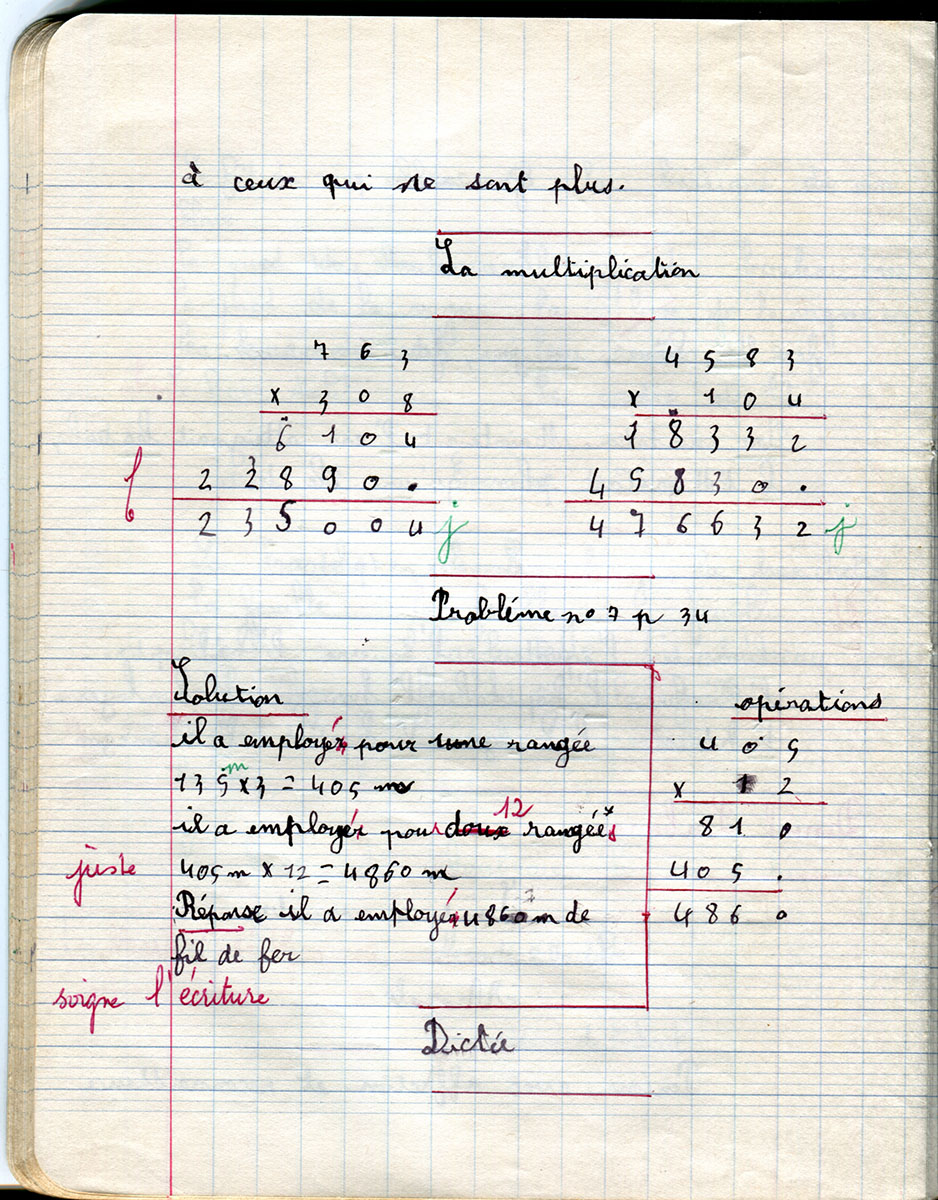 à ceux qui ne sont plus.
La multiplication
7 6 3
x 3 0 8
6 1 0 4
2 2 8 9 0 .
2 3 5 0 0 4 j
4 5 8 3
x 1 0 4
1 8 3 3 2
4 5 8 3 0 .
4 7 6 6 3 2 j
Probléme no 7 p 34
Solution
il a employé pour une rangée
135 m x 3 = 405 m
il a employé pour 12 rangées
405 m x 12 = 4860 m
juste
Réponse il a employé 4860 m de
fil de fer
soigne l'écriture
opérations
4 0 5
x 1 2
8 1 0
4 0 5 .
4 8 6 0
Dictée